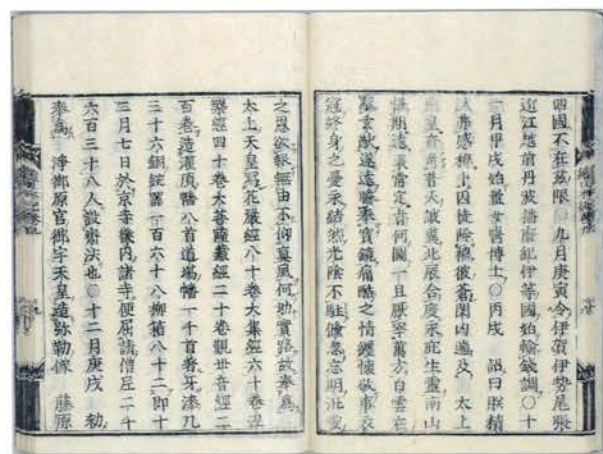 四國不在茲限○九月庚寅令伊賀伊勢尾張
近江越前丹波播磨紀伊等國始輸錢調○十
一月甲戌始置女醫博士○丙戌 詔曰朕精
誠弗感穆卜罔從降禍彼蒼閔凶遄及 太上
天皇奄棄普天誠冀北辰合度永庇生靈南山
協期遠常定省何圖一旦厭宰萬方白雲在
馭玄猷遂遠瞻奉寶鏡痛酷之情纏懷敬事衣
冠終身之憂永結然光陰不駐倏忽忘明汎愛
之恩欲報無由不仰眞風何助冥路故奉爲
太上天皇寫花嚴經八十卷大集經六十卷涅
槃經四十卷大菩薩藏經二十卷觀世音經二
百卷造灌頂幡八首道場幡一千首着牙漆几
三十六銅鋺器一百六十八柳箱八十二即十
二月七日於京寺畿内諸寺便屈請僧尼二千
六百三十八人設齋法也○十二月庚戌 勅
奉爲 淨御原宮御宇天皇造弥勒像 藤原